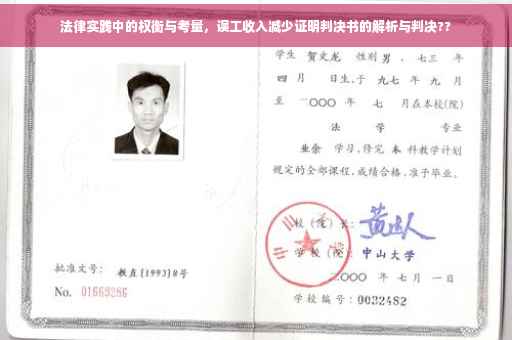 法律实践中的权衡与考量，误工收入减少证明判决书的解析与判决??
学生 贺文龙 性别 男 ，七三 年
四 月 日生，于 九七 年 九 月
至 二〇〇〇 年 七 月在本校(院)
法 学 专业
业余 学习，修完 本 科教学计划
规定的全部课程，成绩合格，准予毕业。
校（院）长：
学 校（院）：中山大学
二〇〇〇 年 七 月 一 日
批准文号： 教直[1993]8号
No. 01669286
学校编号：0032482